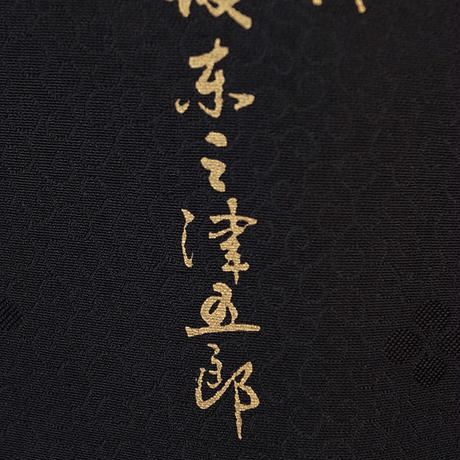 東三津五郎